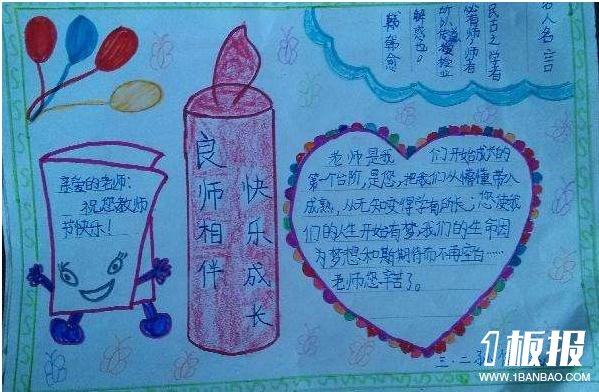 名人名言
民古之学者
必有师,师者
所以传道授业
解惑也。
韩愈
良师相伴
快乐成长
亲爱的老师:
祝您教师
节快乐!
老师是我 们开始成长的
第一个台阶,是您,把我们从懵懂带入
成熟,从无知变得学有所长;您使我
们的人生开始有梦,我们的生命因
为梦想和期待而不再空白……
老师您辛苦了。
三.二班
1板报
WWW.1BANBAO.COM